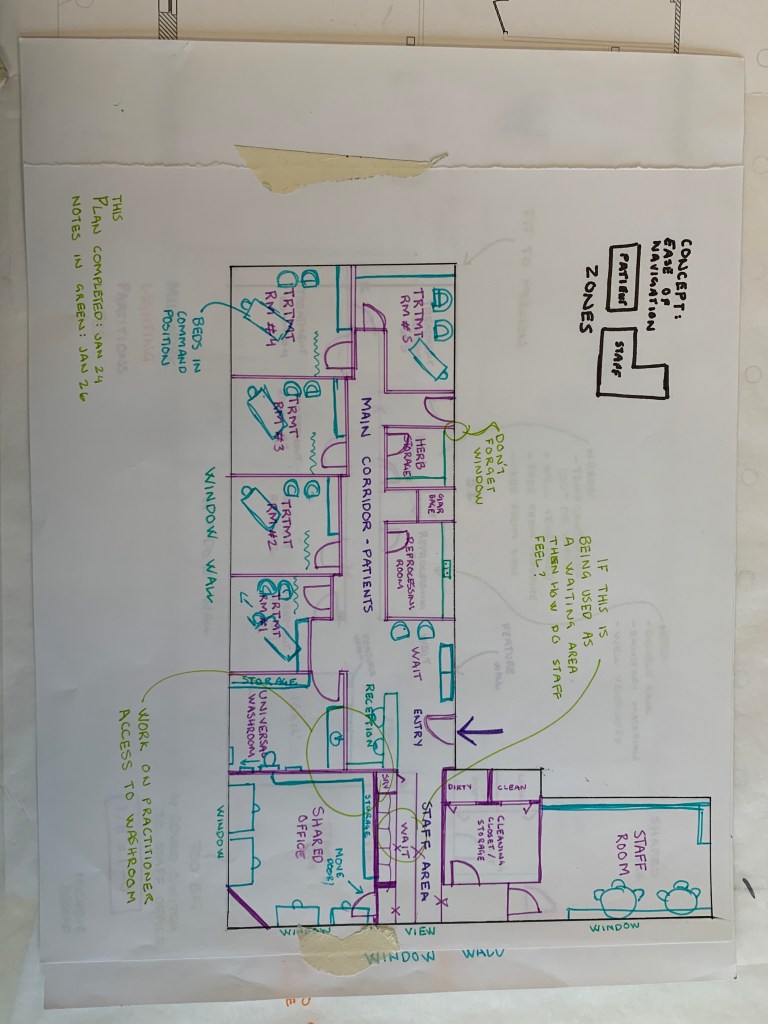 CONCEPT:
EASE OF
NAVIGATION
PATIENT
STAFF
ZONES
THIS
PLAN COMPLETED: JAN 24
NOTES IN GREEN: JAN 26
BEDS IN
COMMAND
POSITION
TRTMT
RM #4
TRTMT
RM #5
TRTMT
RM #3
TRTMT
RM #2
TRTMT
RM #1
MAIN CORRIDOR - PATIENTS
HERB
STORAGE
GAR
BAGE
REPROCESSING
ROOM
DON'T
FORGET
WINDOW
WINDOW WALL
IF THIS IS
BEING USED AS
A WAITING AREA
THEN HOW DO STAFF
FEEL?
WAIT
ENTRY
RECEPTION
STORAGE
UNIVERSAL
WASHROOM
WORK ON PRACTITIONER
ACCESS TO WASHROOM
SHARED
OFFICE
STORAGE
MOVE
DOOR?
WINDOW
STAFF AREA
WAIT
DIRTY
CLEAN
CLEANING
CLOSET/
STORAGE
STAFF
ROOM
VIEW
WINDOW
WINDOW WALL